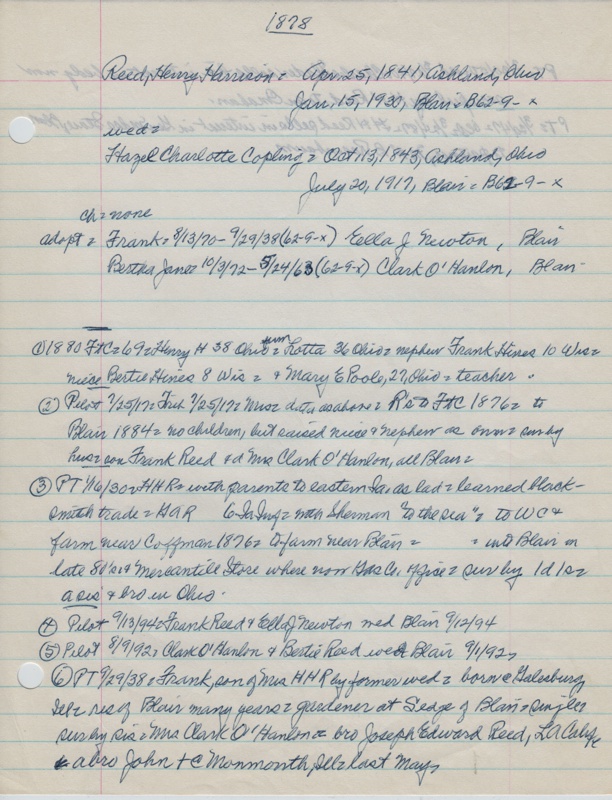 1878
Reed, Henry Harrison = Apr. 25, 1841, Ashland, Ohio
Jan. 15, 1930, Blair = B62-9-x
wed =
Hazel Charlotte Copling = Oct. 13, 1843, Ashland, Ohio
July 20, 1917, Blair = B62-9-x
ch = none
adopt = Frank = 8/13/70 - 9/29/38 (62-9-x) Ella J Newton, Blair
Bertha Janet 10/3/72 - 5/24/63 (62-9-x) Clark O'Hanlon, Blair
① 1880 FtC = 69 = Henry H 38 Ohio = Lotta 36 Ohio = nephew Frank Hines 10 Wis =
niece Bertie Hines 8 Wis = & Mary E Poole, 27, Ohio = teacher
② Pilot 7/25/17 = 7/25/17 = data as above = R's to FtC 1876 = to
Blair 1884 = no children, but raised niece & nephew as own = sur by
hus = son Frank Reed & d Mrs Clark O'Hanlon, all Blair =
③ PT 1/16/30 = HHR = with parents to eastern Ia, as lad = learned black-
smith trade = GAR 6 Ia Inf = with Sherman "to the sea" = to WC &
farm near Coffman 1876 = to farm near Blair = = into Blair in
late 80's = Mercantile Store where now Gas Co. office = sur by 1d 1s =
a sis & bro in Ohio
④ Pilot 9/13/94 = Frank Reed & Ella J Newton wed Blair 9/12/94
⑤ Pilot 8/9/92 = Clark O'Hanlon & Bertie Reed wed Blair 9/1/92
⑥ PT 9/29/38 = Frank, son of Mrs HHR by former wed = born @ Galesburg
Ill = res of Blair many years = gardener at Blair = single =
sur by sis = Mrs Clark O'Hanlon = bro Joseph Edward Reed, LA Calif
& a bro John + C Monmonth, Ill = last May